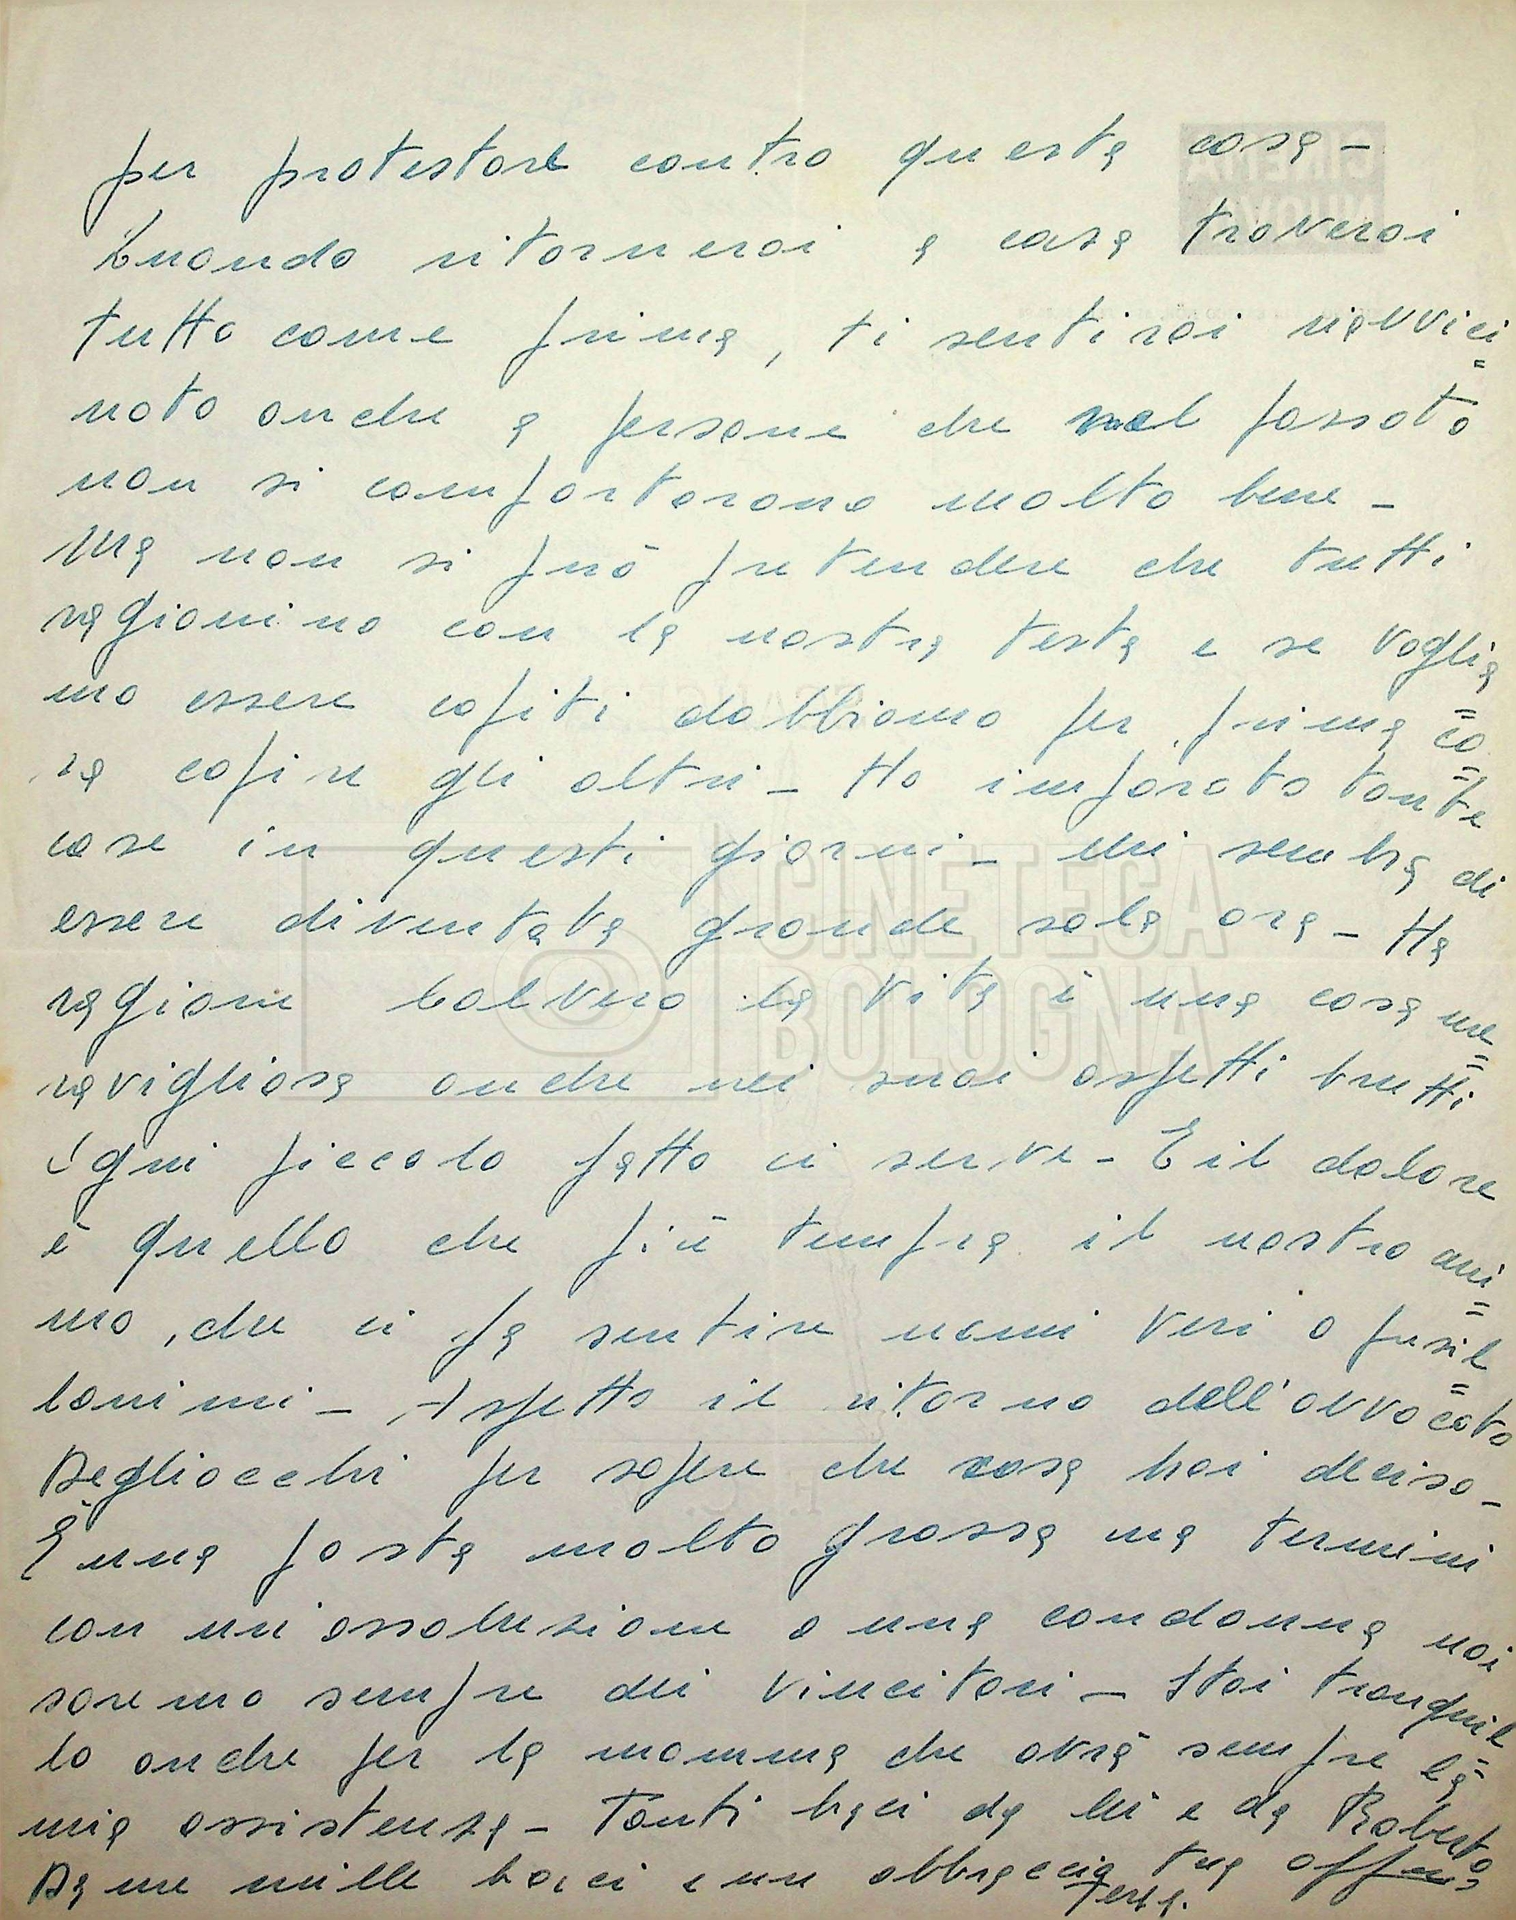 per protestare contro questa cosa -
Quando ritornerai a casa troverai
tutto come prima, ti sentirai riavvici=
nato anche a persone che nel passato
non si comportarono molto bene -
Ma non si può pretendere che tutti
ragionino con la nostra testa e se voglia=
mo essere capiti dobbiamo per prima co=
sa capire gli altri - Ho imparato tante
cose in questi giorni - Mi sembra di
essere diventata grande solo ora - Ha
ragione la vita è una cosa me=
ravigliosa anche nei suoi aspetti brutti
Ogni piccolo fatto ci serve - E il dolore
è quello che più tempra il nostro ani=
mo, che ci fa sentire uomini veri o pusil=
lanimi - Aspetto il ritorno dell'avvocato
Degliocchi per sapere che cosa hai deciso -
È una posta molto grossa ma termini
con un'assoluzione o una condanna noi
saremo sempre dei vincitori - Stai tranquil=
lo anche per la mamma che avrà sempre la
mia assistenza - Tanti baci da lei e da Roberto
Da me mille baci e un abbraccio tua
CINEMA
NUOVO
CINETECA
BOLOGNA